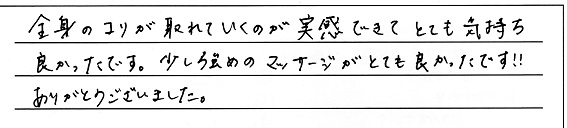 全身のコリが取れていくのが実感できてとても気持ち
良かったです。少し強めのマッサージがとても良かったです!!
ありがとうございました。